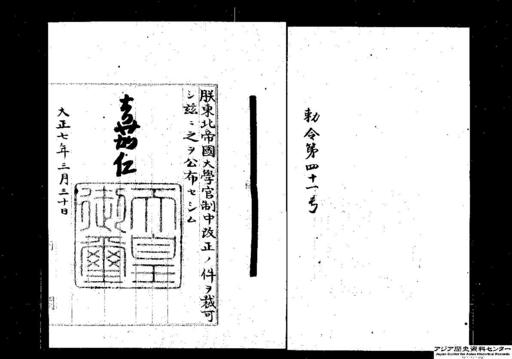 勅令第四十一号
朕東北帝國大學官制中改正ノ件ヲ裁可
シ玆ニ之ヲ公布セシム
嘉仁
天皇御璽
大正七年三月三十日
アジア歴史資料センター
Japan Center for Asian Historical Records